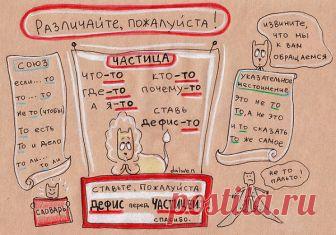 Различайте, пожалуйста!
СОЮЗ
если... то
то... то
не то (чтобы)
то есть
То и дело
то ли... то ли
ЧАСТИЦА
что-то
кто-то
где-то
почему-то
а я-то
ставь
дефис-то
dalwen
извините,
что мы
к вам
обращаемся
указательное
местоимение
это не то
То, а не это
и то сказать
То же самое
не то
пальто!
словарь
ставьте, пожалуйста
дефис перед частицей
спасибо.
fostila.ru